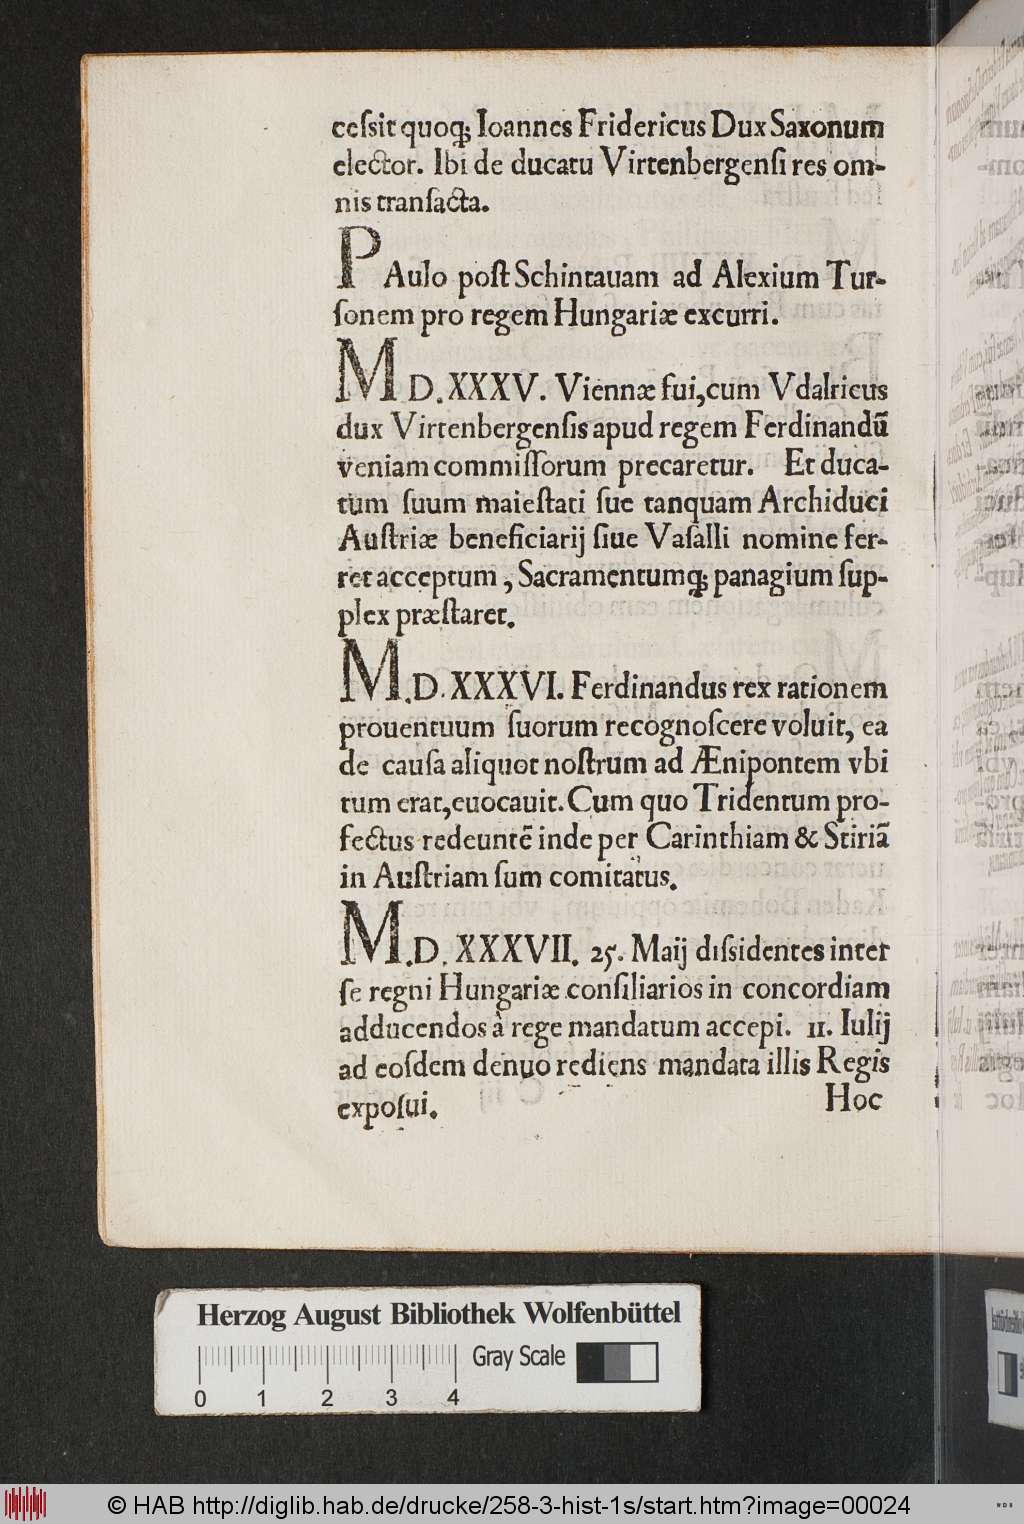 ceſsit quoq; Ioannes Fridericus Dux Saxonum
elector. Ibi de ducatu Virtenbergenſi res om-
nis tranſacta.
PAulo poſt Schintauam ad Alexium Tur-
ſonem pro regem Hungariæ excurri.
M D. XXXV. Viennæ fui, cum Vdalricus
dux Virtenbergenſis apud regem Ferdinandū
veniam commiſſorum precaretur. Et duca-
tum ſuum maieſtati ſue tanquam Archiduci
Auſtriæ beneficiarij ſiue Vaſalli nomine fer-
ret acceptum, Sacramentumq; panagium ſup-
plex præſtaret.
M. D. XXXVI. Ferdinandus rex rationem
prouentuum ſuorum recognoſcere voluit, ea
de cauſa aliquot noſtrum ad Ænipontem vbi
tum erat, euocauit. Cum quo Tridentum pro-
fectus redeuntē inde per Carinthiam & Stiriā
in Auſtriam ſum comitatus.
M. D. XXXVII. 25. Maij diſsidentes inter
ſe regni Hungariæ conſiliarios in concordiam
adducendos à rege mandatum accepi. 11. Iulij
ad eoſdem denuo rediens mandata illis Regis
expoſui. Hoc
Herzog August Bibliothek Wolfenbüttel
Gray Scale
0 1 2 3 4
© HAB http://diglib.hab.de/drucke/258-3-hist-1s/start.htm?image=00024